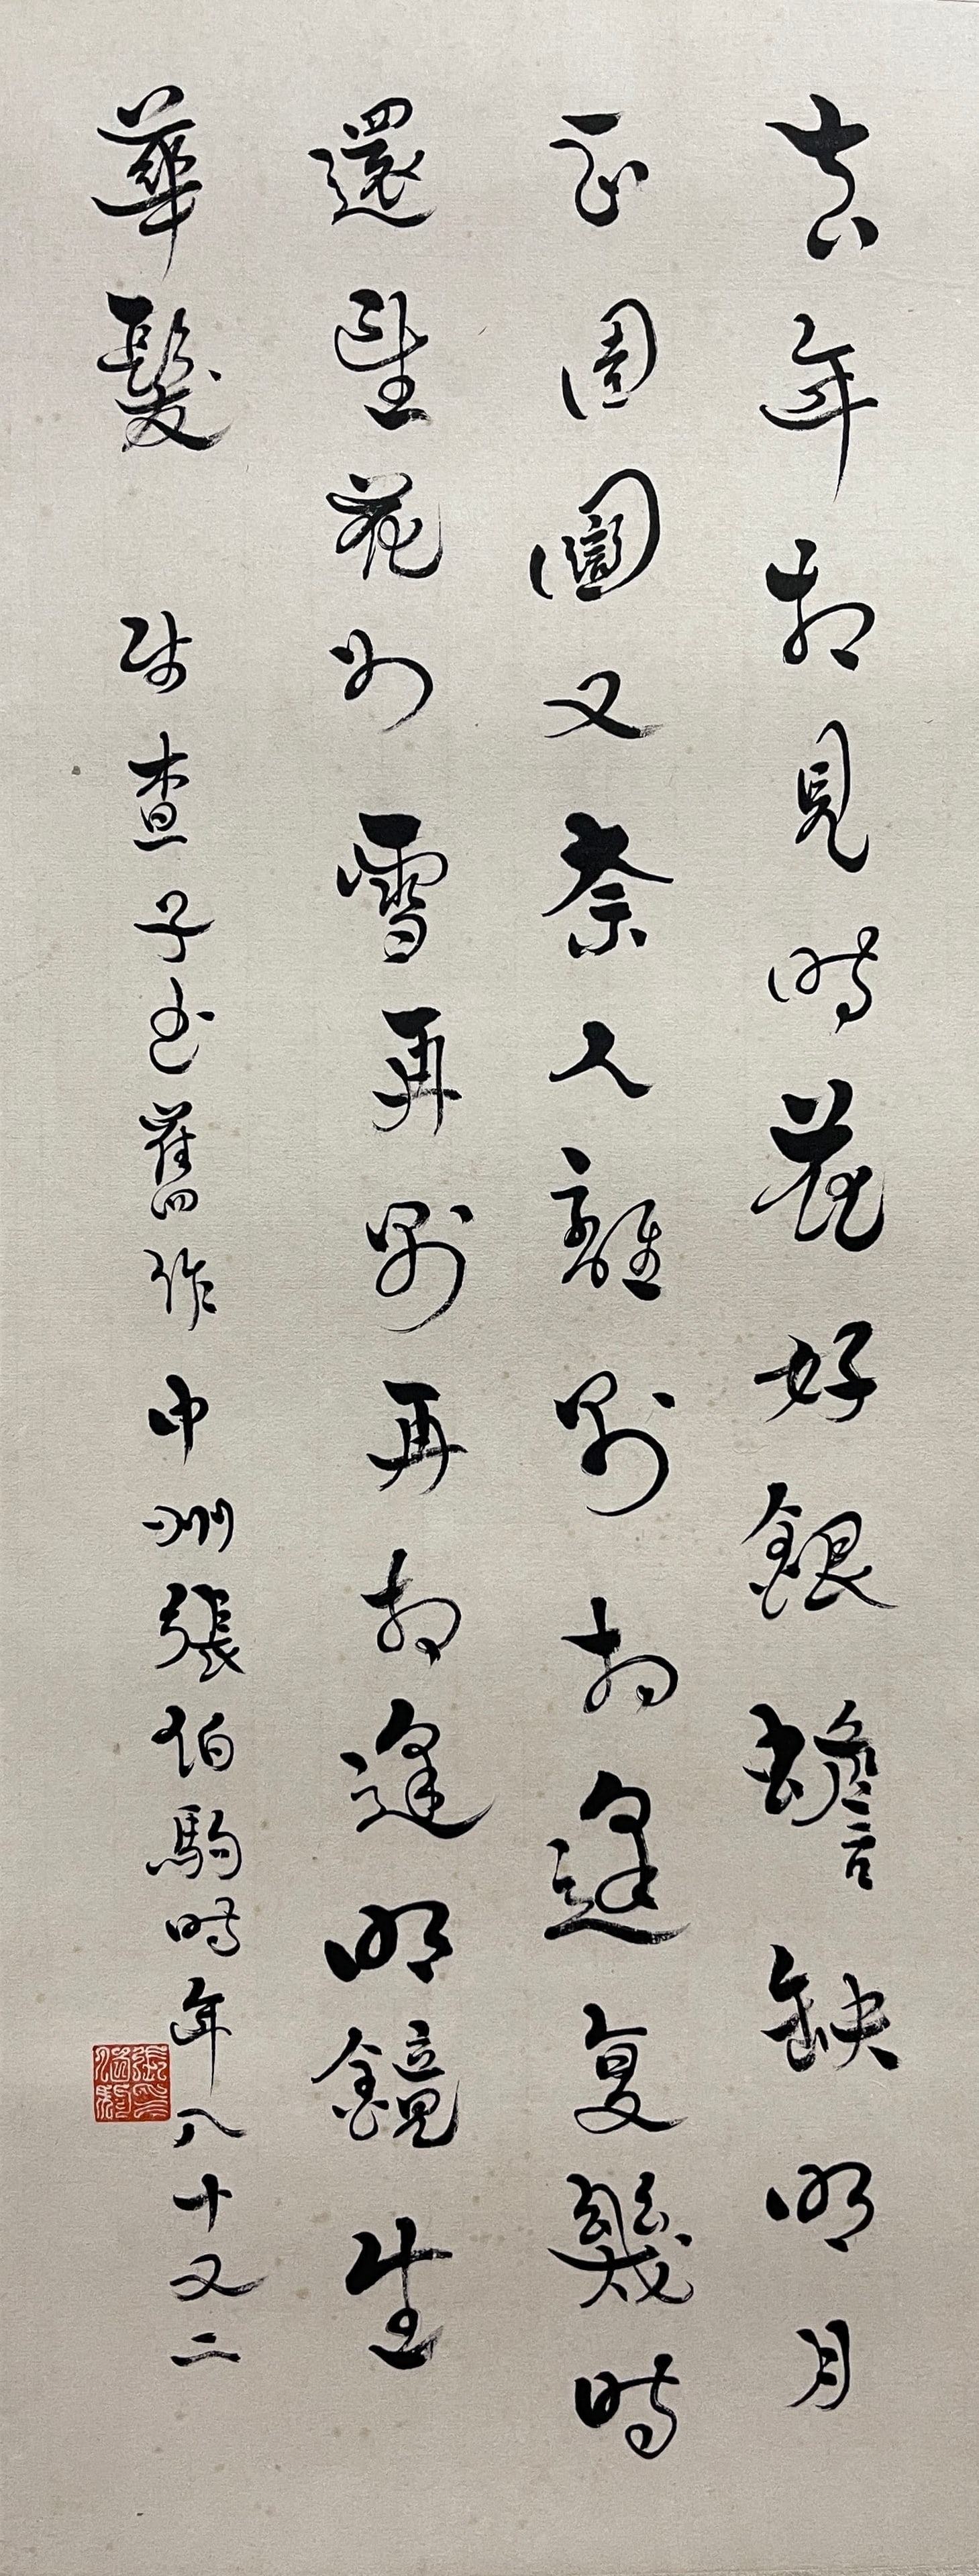 去年相見時花好銀蟾缺明月
正團圞又奈人離別相逢复幾時
還望花如雪再別再相逢明鏡生
華髮 查子舊作 中州張伯駒時年八十又二
張印伯駒